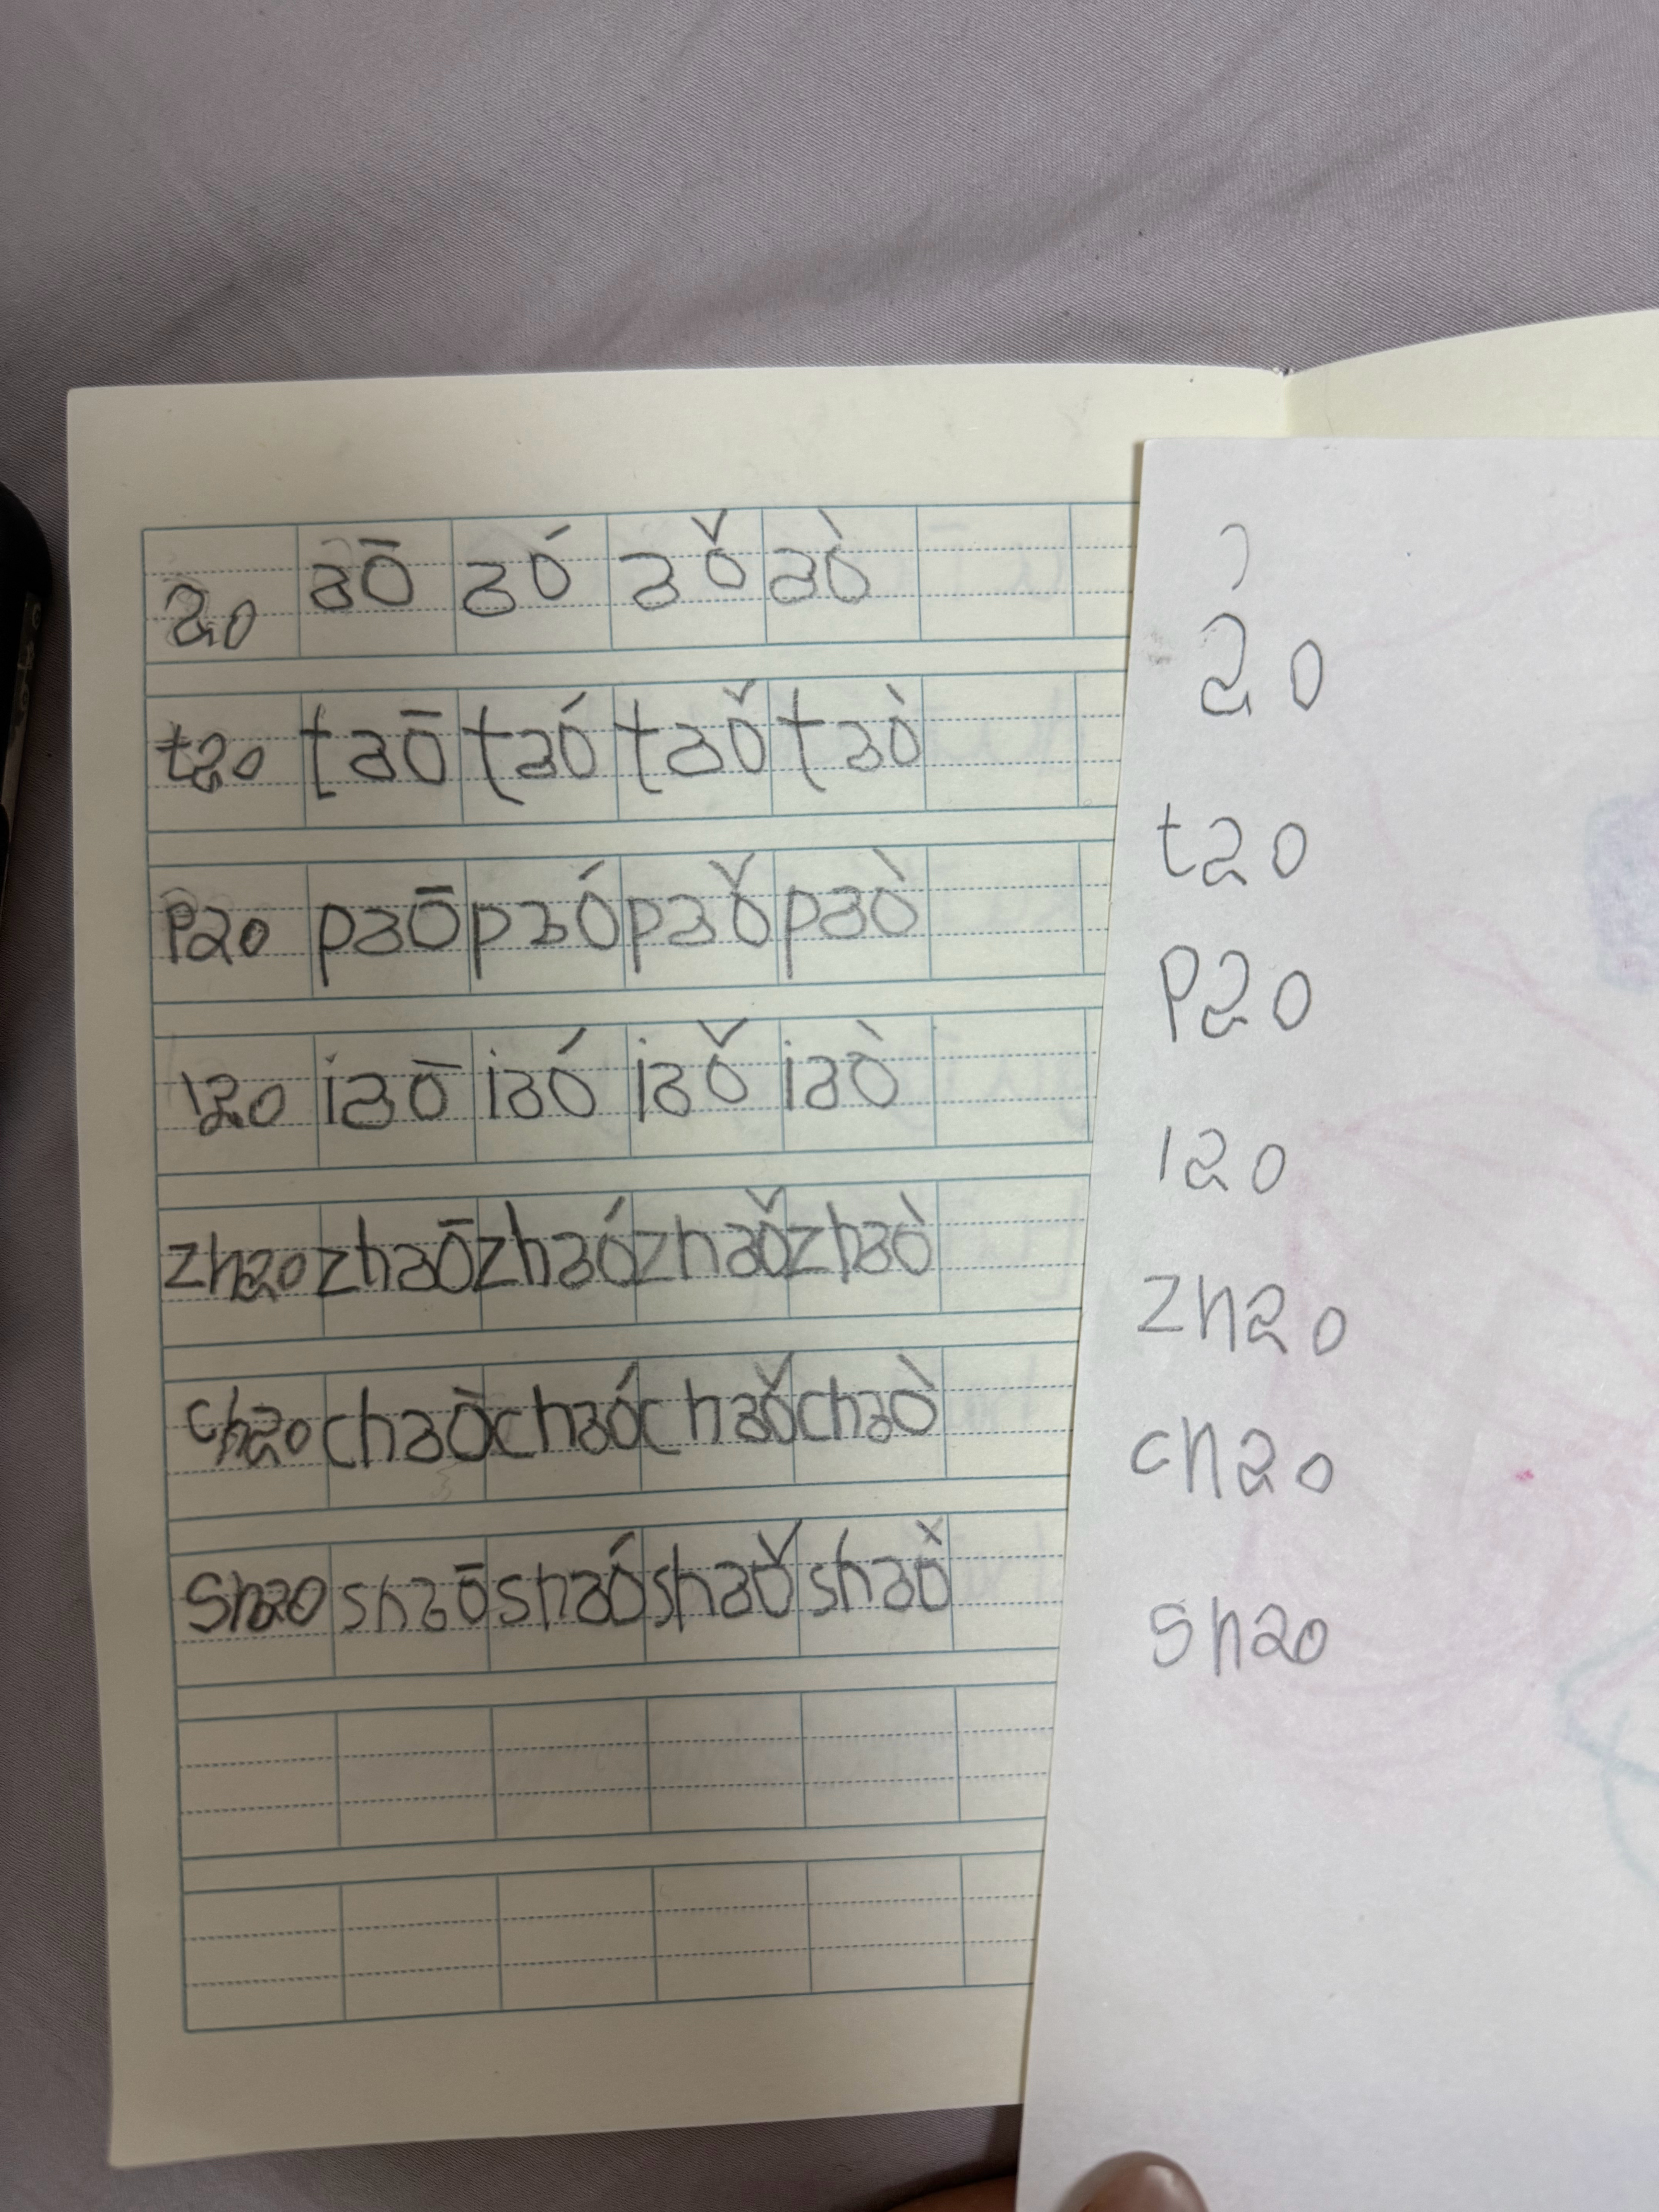 ao aō aó aǒ aò
tao taō taó taǒ taò
pao paō paó paǒ paò
iao iaō iaó iaǒ iaò
zhao zhaō zhaó zhaǒ zhaò
chao chaō chaó chaǒ chaò
shao shaō shaó shaǒ shaò
ao
tao
pao
iao
zhao
chao
shao